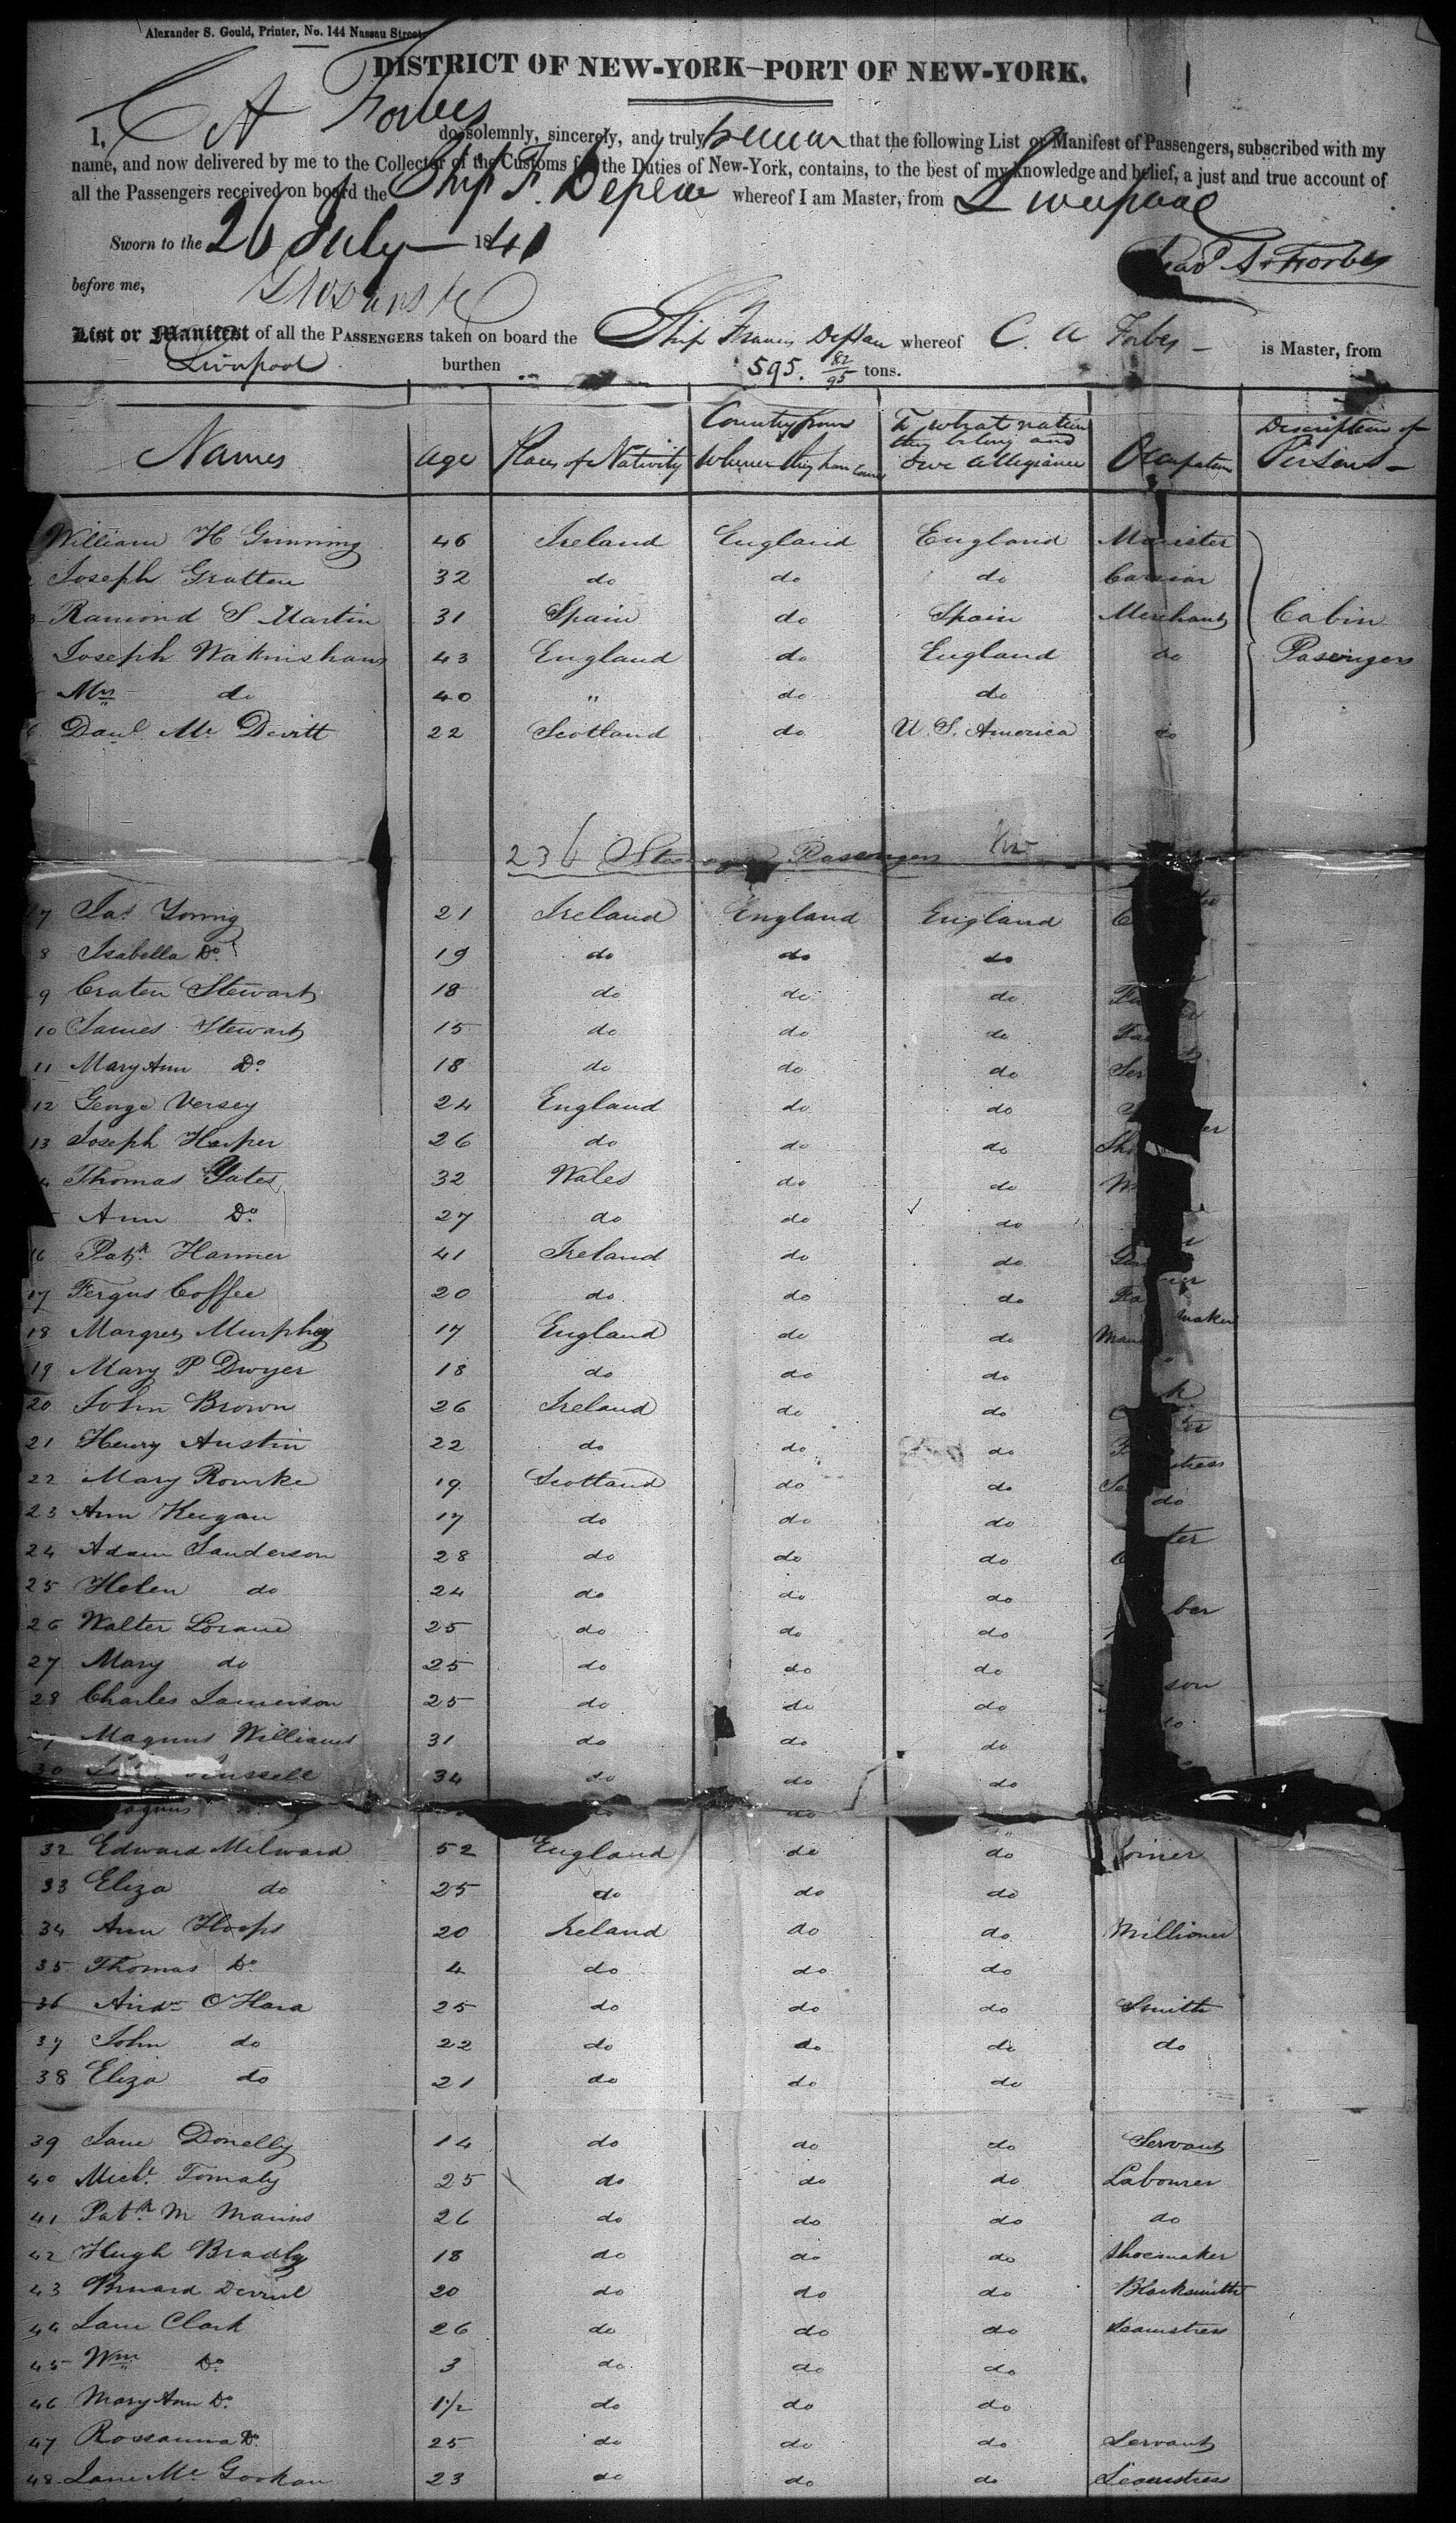 Alexander S. Gould, Printer, No. 144 Nassau Street
DISTRICT OF NEW-YORK—PORT OF NEW-YORK.
I, C A Forbes do solemnly, sincerely, and truly swear that the following List or Manifest of Passengers, subscribed with my
name, and now delivered by me to the Collector of the Customs for the Duties of New-York, contains, to the best of my knowledge and belief, a just and true account of
all the Passengers received on board the Ship F. Depau whereof I am Master, from Liverpool
Sworn to the 26 July 1841
Chas A Forbes
before me,
List or Manifest of all the PASSENGERS taken on board the Ship Francis Depau whereof C. A Forbes is Master, from
Liverpool burthen 595. 82/95 tons.
Names Age Places of Nativity Country from Whence they have come To what nation they belong and owe allegiance Occupation Description of Persons
William H 46 Ireland England England Minister
Joseph Gratten 32 do do do
3 Ramond S Martin 31 Spain do Spain Merchant Cabin
Joseph 43 England do England do Pasengers
Mrs do 40 " do do
6 Danl Mc Devitt 22 Scotland do U. S. America do
236 Steerage Passengers
7 Jas Young 21 Ireland England England
8 Isabella Do 19 do do do
9 Craten Stewart 18 do do do
10 James Stewart 15 do do do
11 Mary Ann Do 18 do do do Ser
12 George Versey 24 England do do
13 Joseph Harper 26 do do do Sho
Thomas Yates 32 Wales do do
Ann Do 27 do do do
16 Patk Hanner 41 Ireland do do
17 Fergus Coffee 20 do do do
18 Margret Murphy 17 England do do Man maker
19 Mary P Dwyer 18 do do do
20 John Brown 26 Ireland do do
21 Henry Austin 22 do do do
22 Mary Rourke 19 Scotland do do Se stress
23 Ann Keegan 17 do do do do
24 Adam Sanderson 28 do do do ter
25 Helen do 24 do do do
26 Walter Lorane 25 do do do ber
27 Mary do 25 do do do
28 Charles Jamieson 25 do do do son
Magnus Williams 31 do do do
30 Russell 34 do do do
32 Edward Milward 52 England do do Joiner
33 Eliza do 25 do do do
34 Ann Hoops 20 Ireland do do Millioner
35 Thomas Do 4 do do do
36 Andw O'Hara 25 do do do Smith
37 John do 22 do do do do
38 Eliza do 21 do do do
39 Jane Donelly 14 do do do Servant
40 Michl Tomaty 25 do do do Labourer
41 Patk M Manus 26 do do do do
42 Hugh Bradly 18 do do do Shoemaker
43 Bernard 20 do do do Blacksmith
44 Jane Clark 26 do do do Seamstress
45 Wm Do 3 do do do
46 Mary Ann Do 1 1/2 do do do
47 Rossanna Do 25 do do do Servant
48 Jane Mc Gookan 23 do do do Seamstress